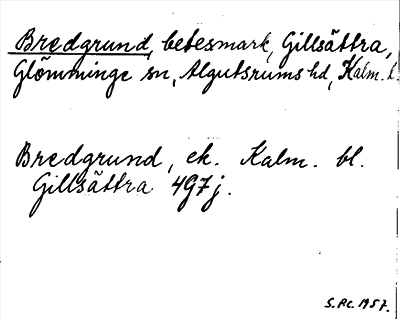 Bredgrund, betesmark, Gillsättra,
Glömminge sn, Algutsrums hd, Kalm. l.
Bredgrund, ek. Kalm. bl.
Gillsättra 4G7j.
S.Pc. 1957.